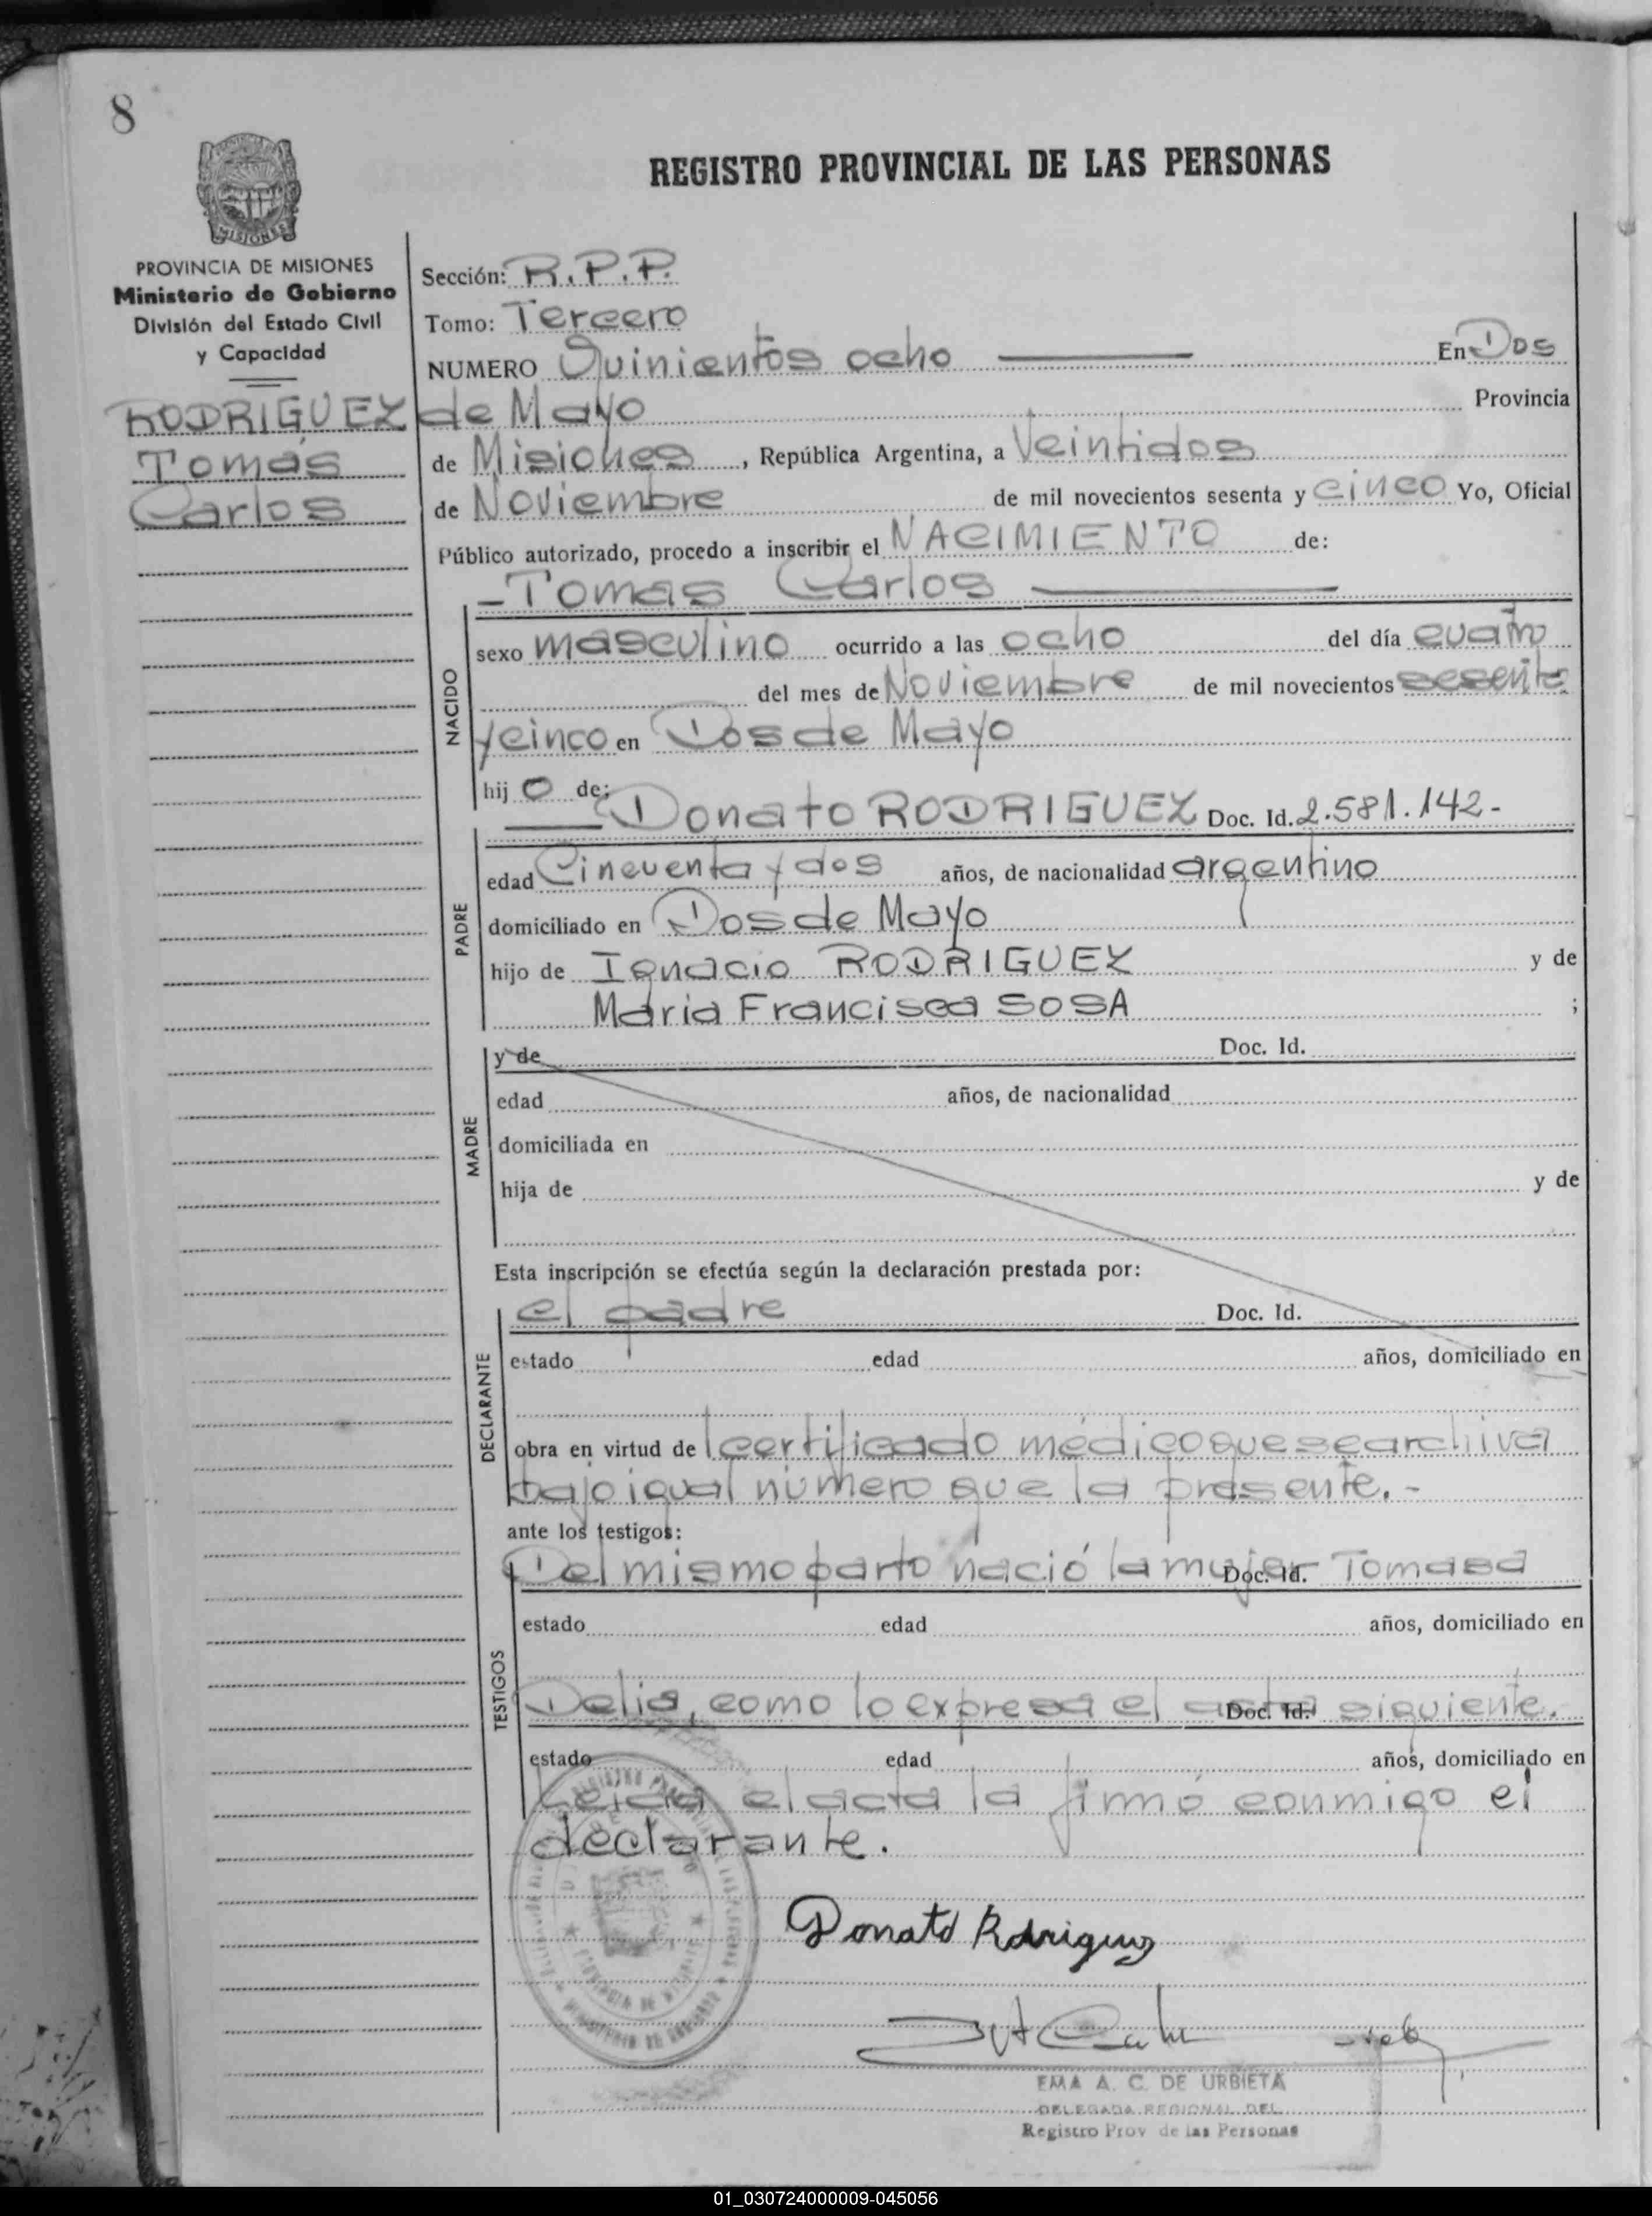 8
REGISTRO PROVINCIAL DE LAS PERSONAS
MISIONES
PROVINCIA DE MISIONES
Ministerio de Gobierno
División del Estado Civil
y Capacidad
RODRIGUEZ
Tomás
Carlos
Sección: R.P.P.
Tomo: Tercero
NUMERO Quinientos ocho En Dos
de Mayo Provincia
de Misiones, República Argentina, a Veintidos
de Noviembre de mil novecientos sesenta y cinco Yo, Oficial
Público autorizado, procedo a inscribir el NACIMIENTO de:
- Tomas Carlos
NACIDO
sexo masculino ocurrido a las ocho del día cuatro
del mes de Noviembre de mil novecientos sesenta
y cinco en Dos de Mayo
hij o de:
Donato RODRIGUEZ Doc. Id. 2.581.142-
PADRE
edad Cincuenta y dos años, de nacionalidad argentino
domiciliado en Dos de Mayo
hijo de Ignacio RODRIGUEZ y de
Maria Francisca SOSA ;
MADRE
y de Doc. Id.
edad años, de nacionalidad
domiciliada en
hija de y de
Esta inscripción se efectúa según la declaración prestada por:
DECLARANTE
el padre Doc. Id.
estado edad años, domiciliado en
obra en virtud de certificado médico que se archiva
bajo igual número que la presente.-
ante los testigos:
TESTIGOS
Del mismo parto nació la mujer Doc. Id. Tomasa
estado edad años, domiciliado en
Delia, como lo expresa el acta Doc. Id. siguiente.
estado edad años, domiciliado en
Leída el acta la firmó conmigo el
declarante.
Donato Rodriguez
EMA A. C. DE URBIETA
DELEGADA REGIONAL DEL
Registro Prov de las Personas
01_030724000009-045056